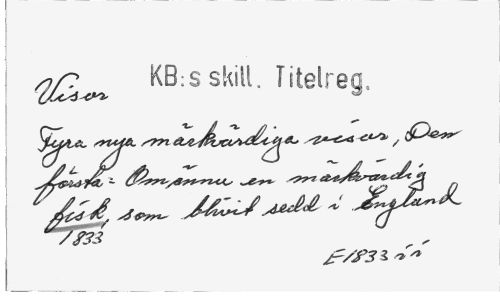 KB:s skill. Titelreg.
Visor
Fyra nya märkvärdiga visor, Den
första: Om ännu en märkvärdig
fisk, som blivit sedd i England
1833
E1833 ii